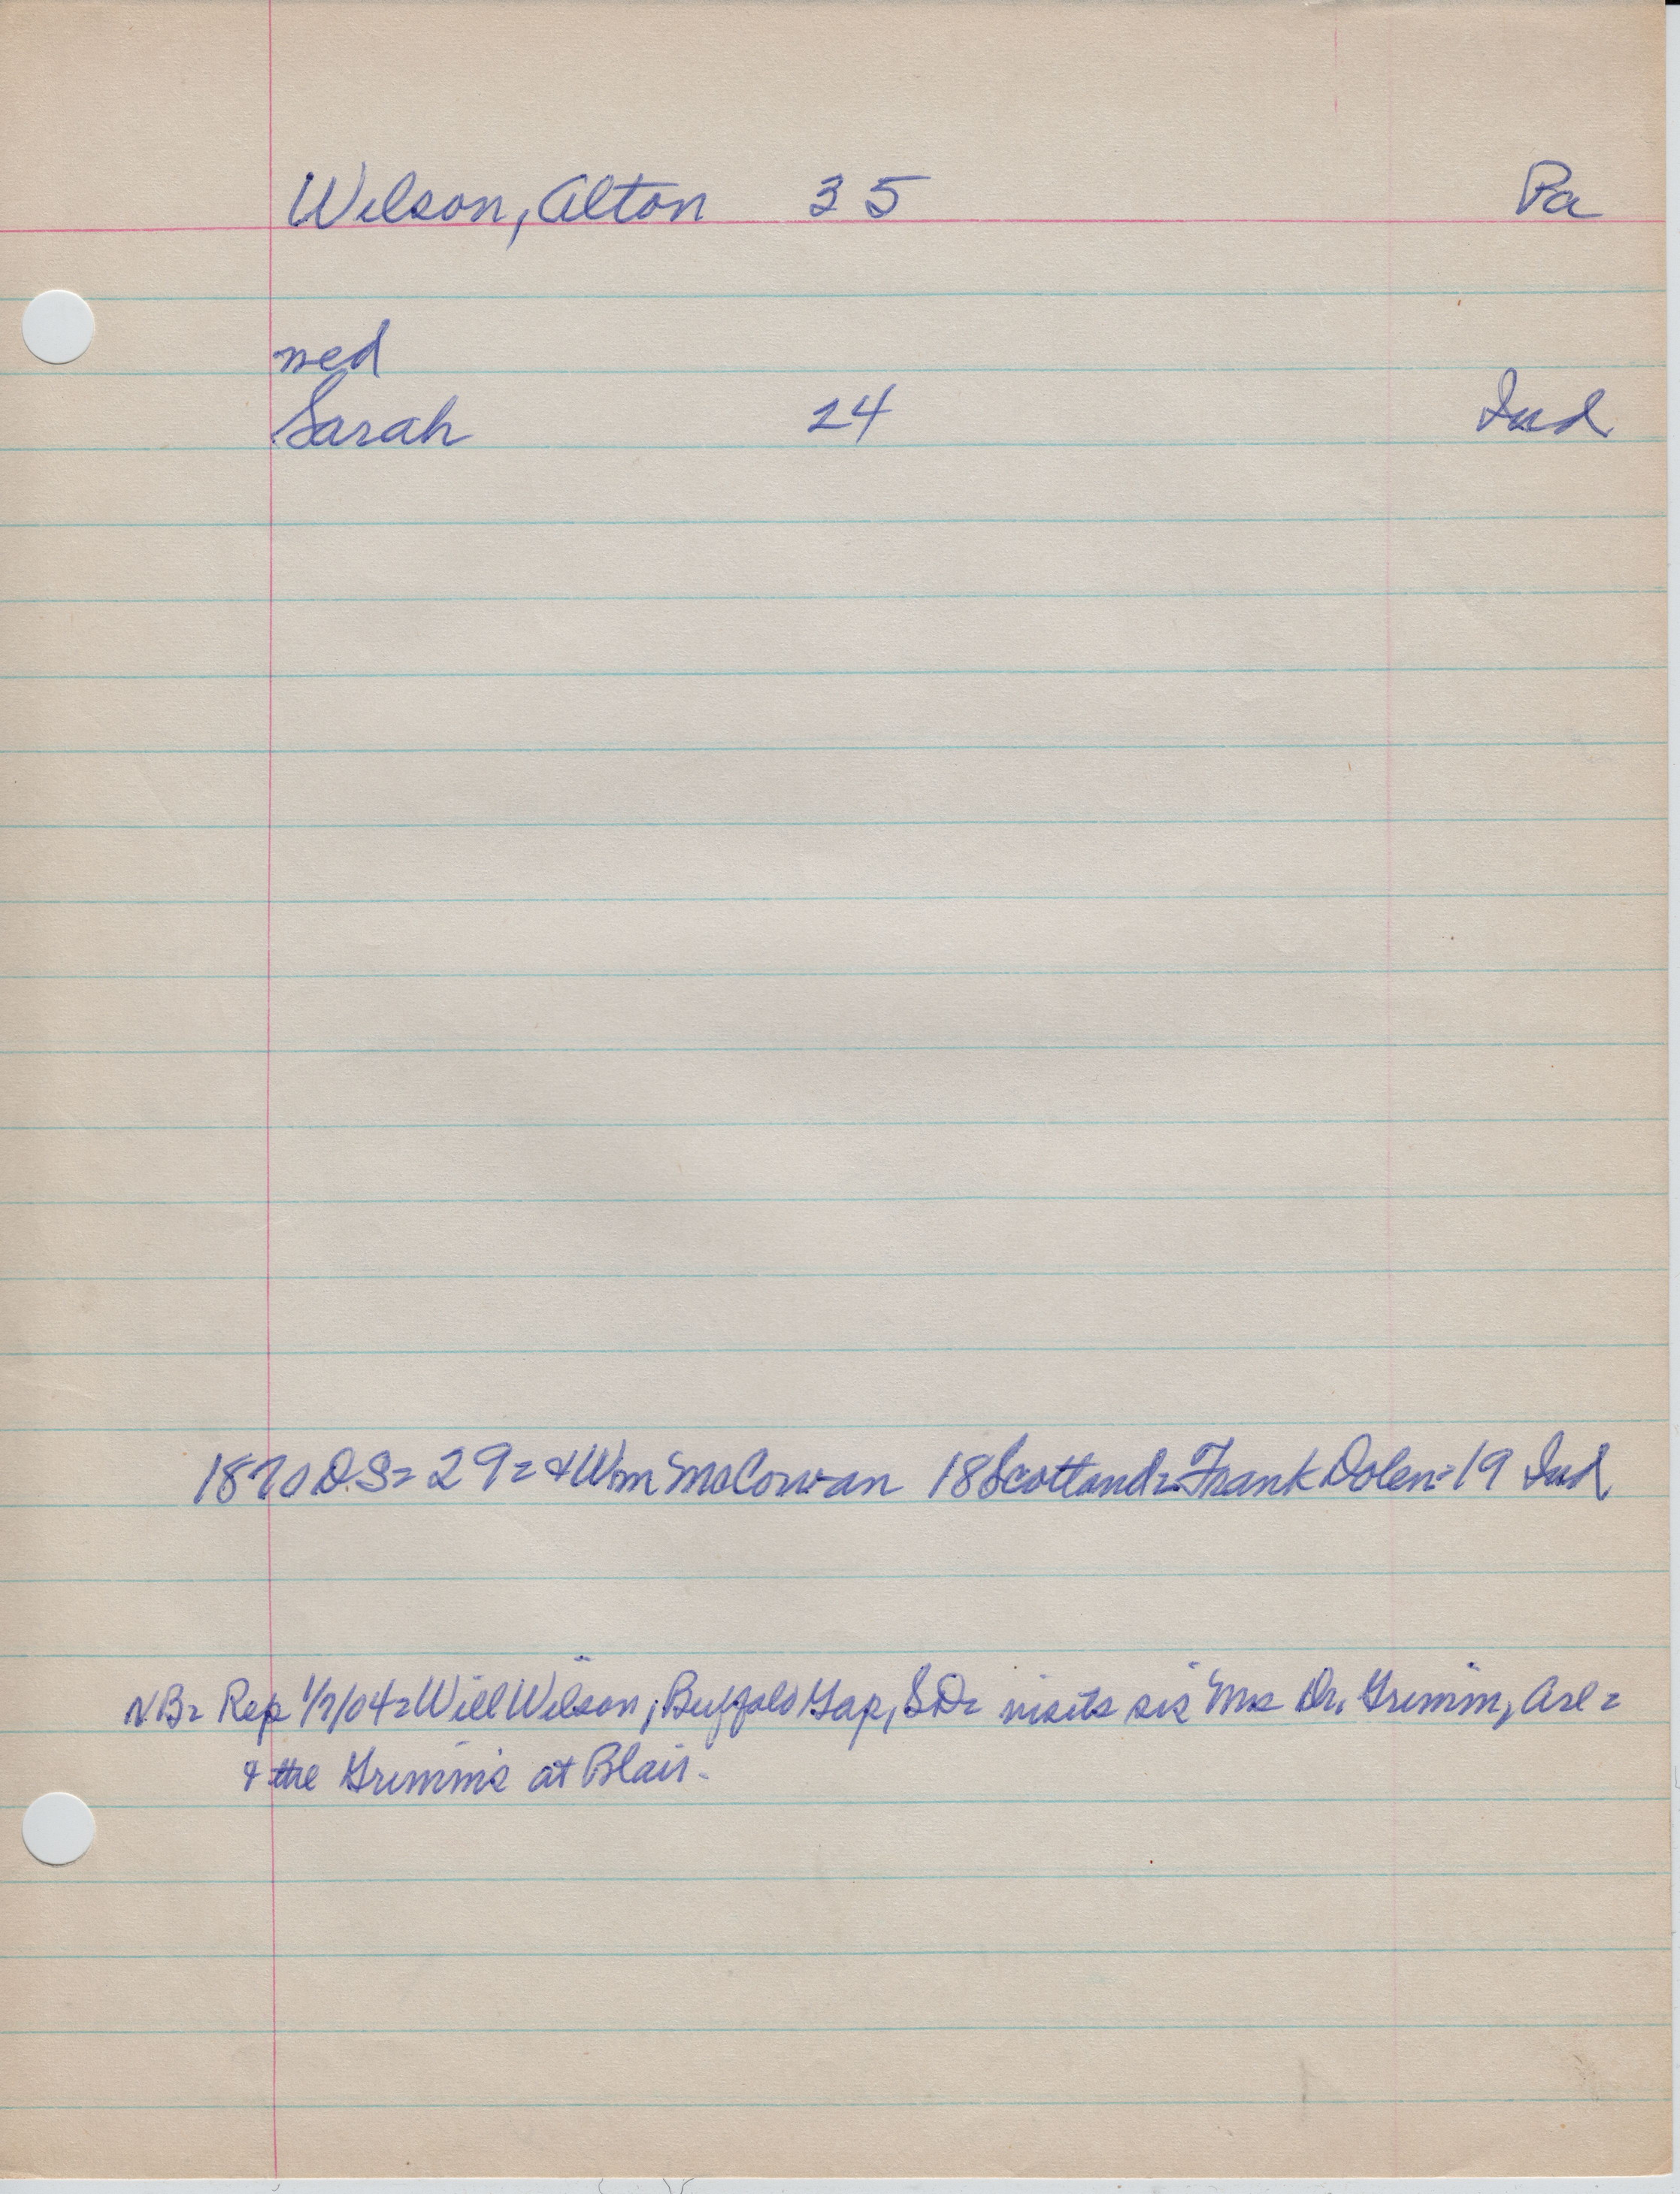 Wilson, Alton 35 Pa
ned
Sarah 24 Ind
1870 D.S= 29= & Wm McCowan 18 Scotland= Frank Dolen=19 Ind
NB= Rep 1/7/04= Will Wilson, Buffalo Gap, SD= visits sis Mrs Dr. Grimm, Arl=
& the Grimms at Blair.